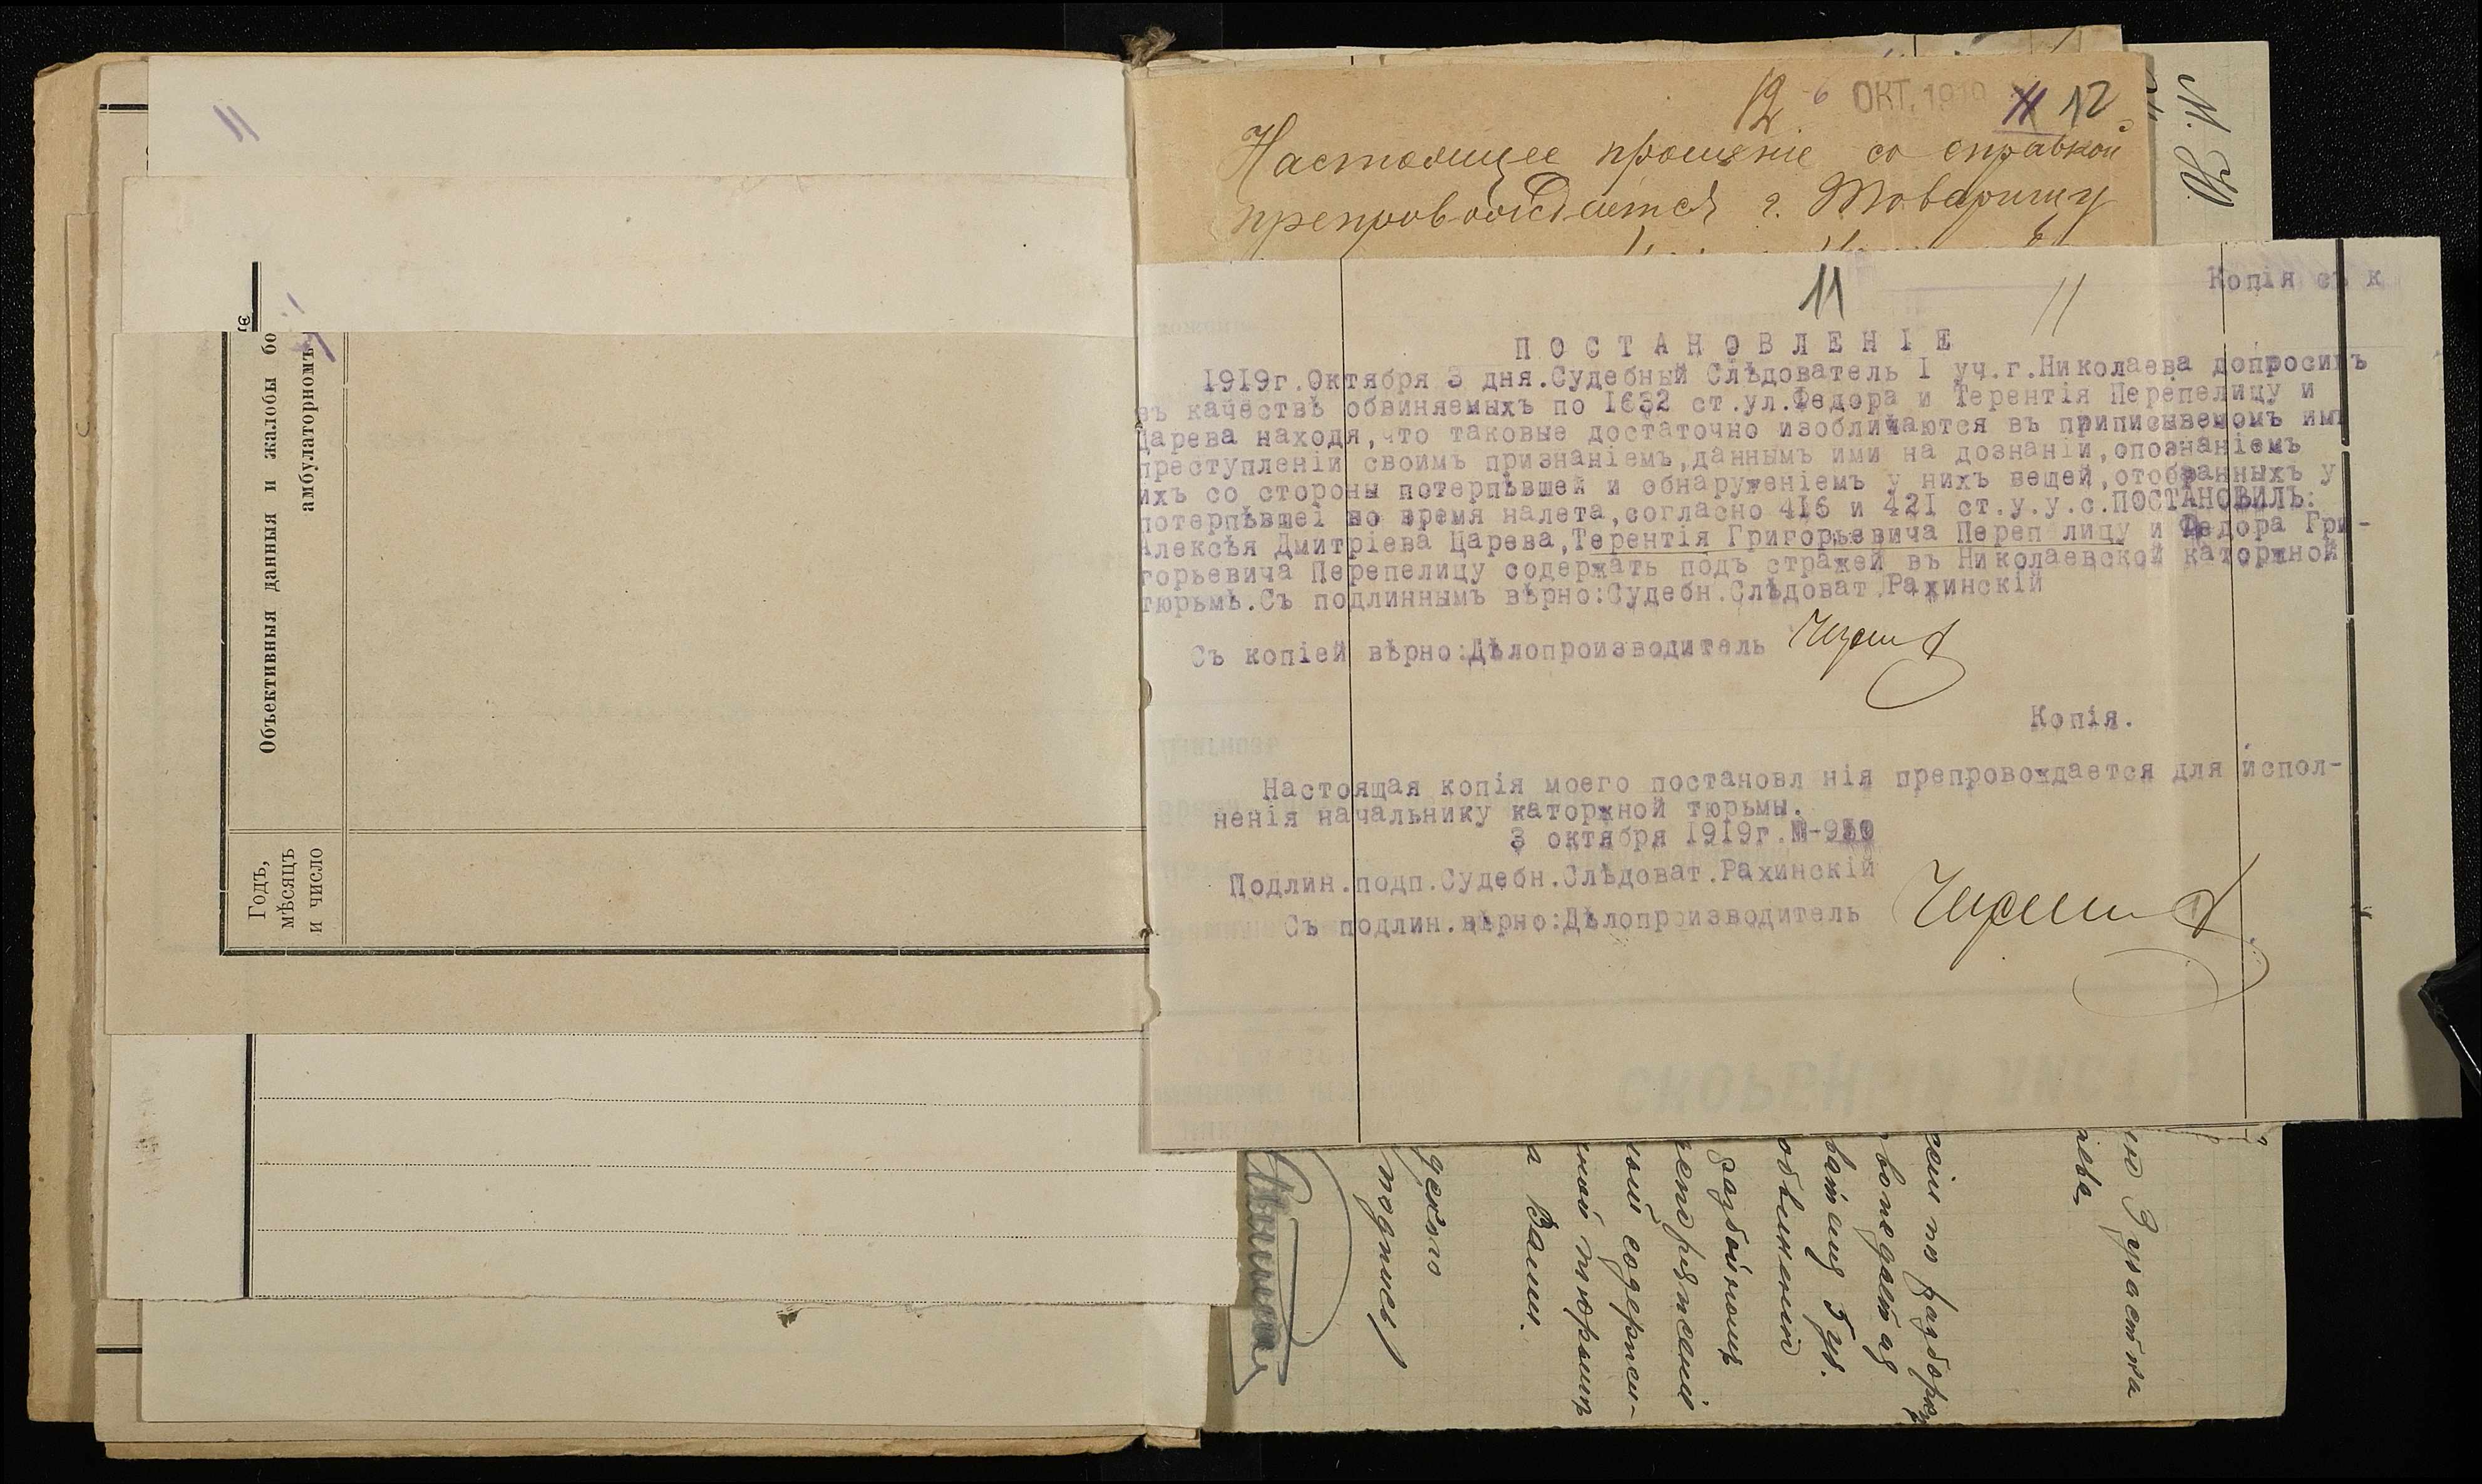 11
Объективныя данныя и жалобы бо
амбулаторномъ
Годъ,
мѣсяцъ
и число
12 6 ОКТ. 1919 11 12
Настоящее прошеніе со справкой
препровождается г. Товарищу
11 11
Копія съ к
ПОСТАНОВЛЕНІЕ
1919г.Октября 3 дня.Судебный Слѣдователь I уч.г.Николаева допросивъ
въ качествѣ обвиняемыхъ по 1632 ст.ул.Федора и Терентія Перепелицу и
Царева находя,что таковые достаточно изобличаются въ приписываемомъ имъ
преступленіи своимъ признаніемъ,даннымъ ими на дознаніи,опознаніемъ
ихъ со стороны потерпѣвшей и обнаруженіемъ у нихъ вещей,отобранныхъ у
потерпѣвшей во время налета,согласно 416 и 421 ст.у.у.с.ПОСТАНОВИЛЪ:
Алексѣя Дмитріева Царева,Терентія Григорьевича Переп лицу и Федора Гри-
горьевича Перепелицу содержать подъ стражей въ Николаевской каторжной
тюрьмѣ.Съ подлиннымъ вѣрно:Судебн.Слѣдоват.Рахинскій
Съ копіей вѣрно:Дѣлопроизводитель
Копія.
Настоящая копія моего постановл нія препровождается для испол-
ненія начальнику каторжной тюрьмы.
3 октября 1919г.№-930
Подлин.подп.Судебн.Слѣдоват.Рахинскій
Съ подлин.вѣрно:Дѣлопроизводитель
участка
аева
по разбору
ват
обвиненію
разбойномъ
содержа-
ной тюрьмы
а Ваши.
подпись